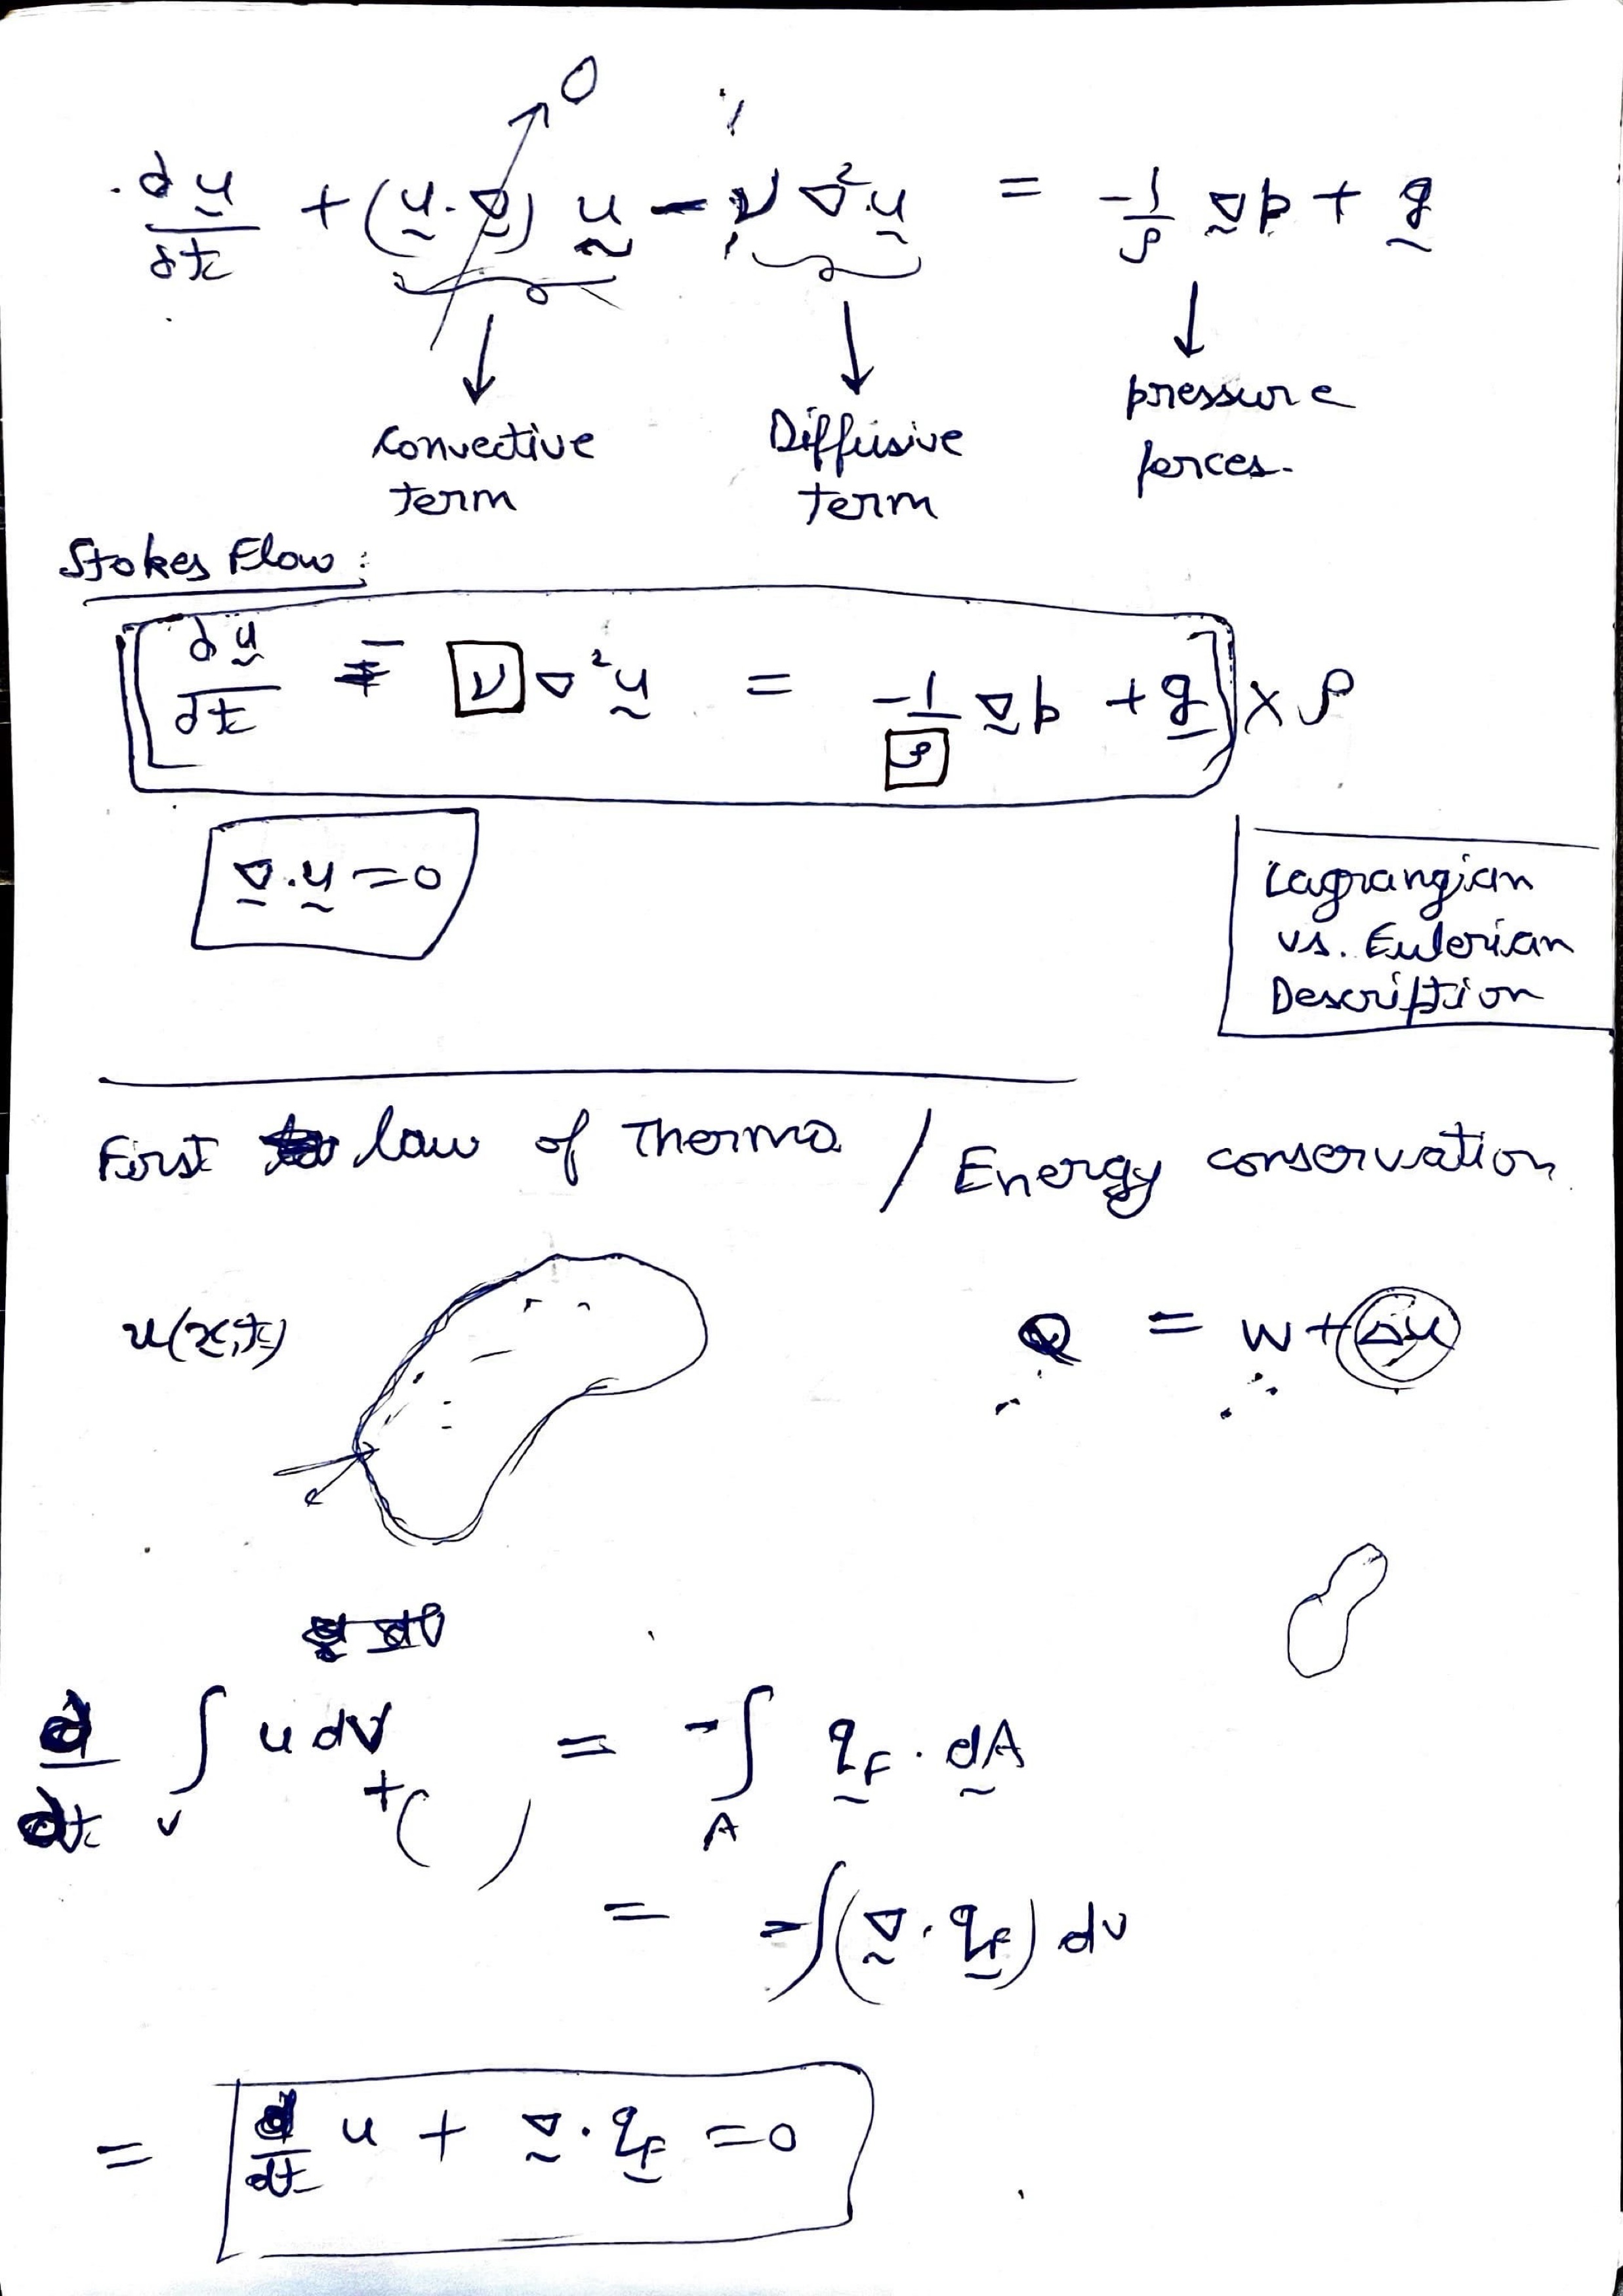 ∂u/∂t + (u·∇)u − ν∇²u = −1/ρ ∇p + g
0
convective term
Diffusive term
pressure forces.
Stokes Flow:
[∂u/∂t − ν∇²u = −1/ρ ∇p + g] × ρ
∇·u = 0
Lagrangian
vs. Eulerian
Description
First law of Thermo / Energy conservation
u(x,t)
Q = W + Δu
d/dt ∫_V u dV + ( ) = −∫_A q_F · dA
= −∫(∇·q_F) dv
= d/dt u + ∇·q_F = 0